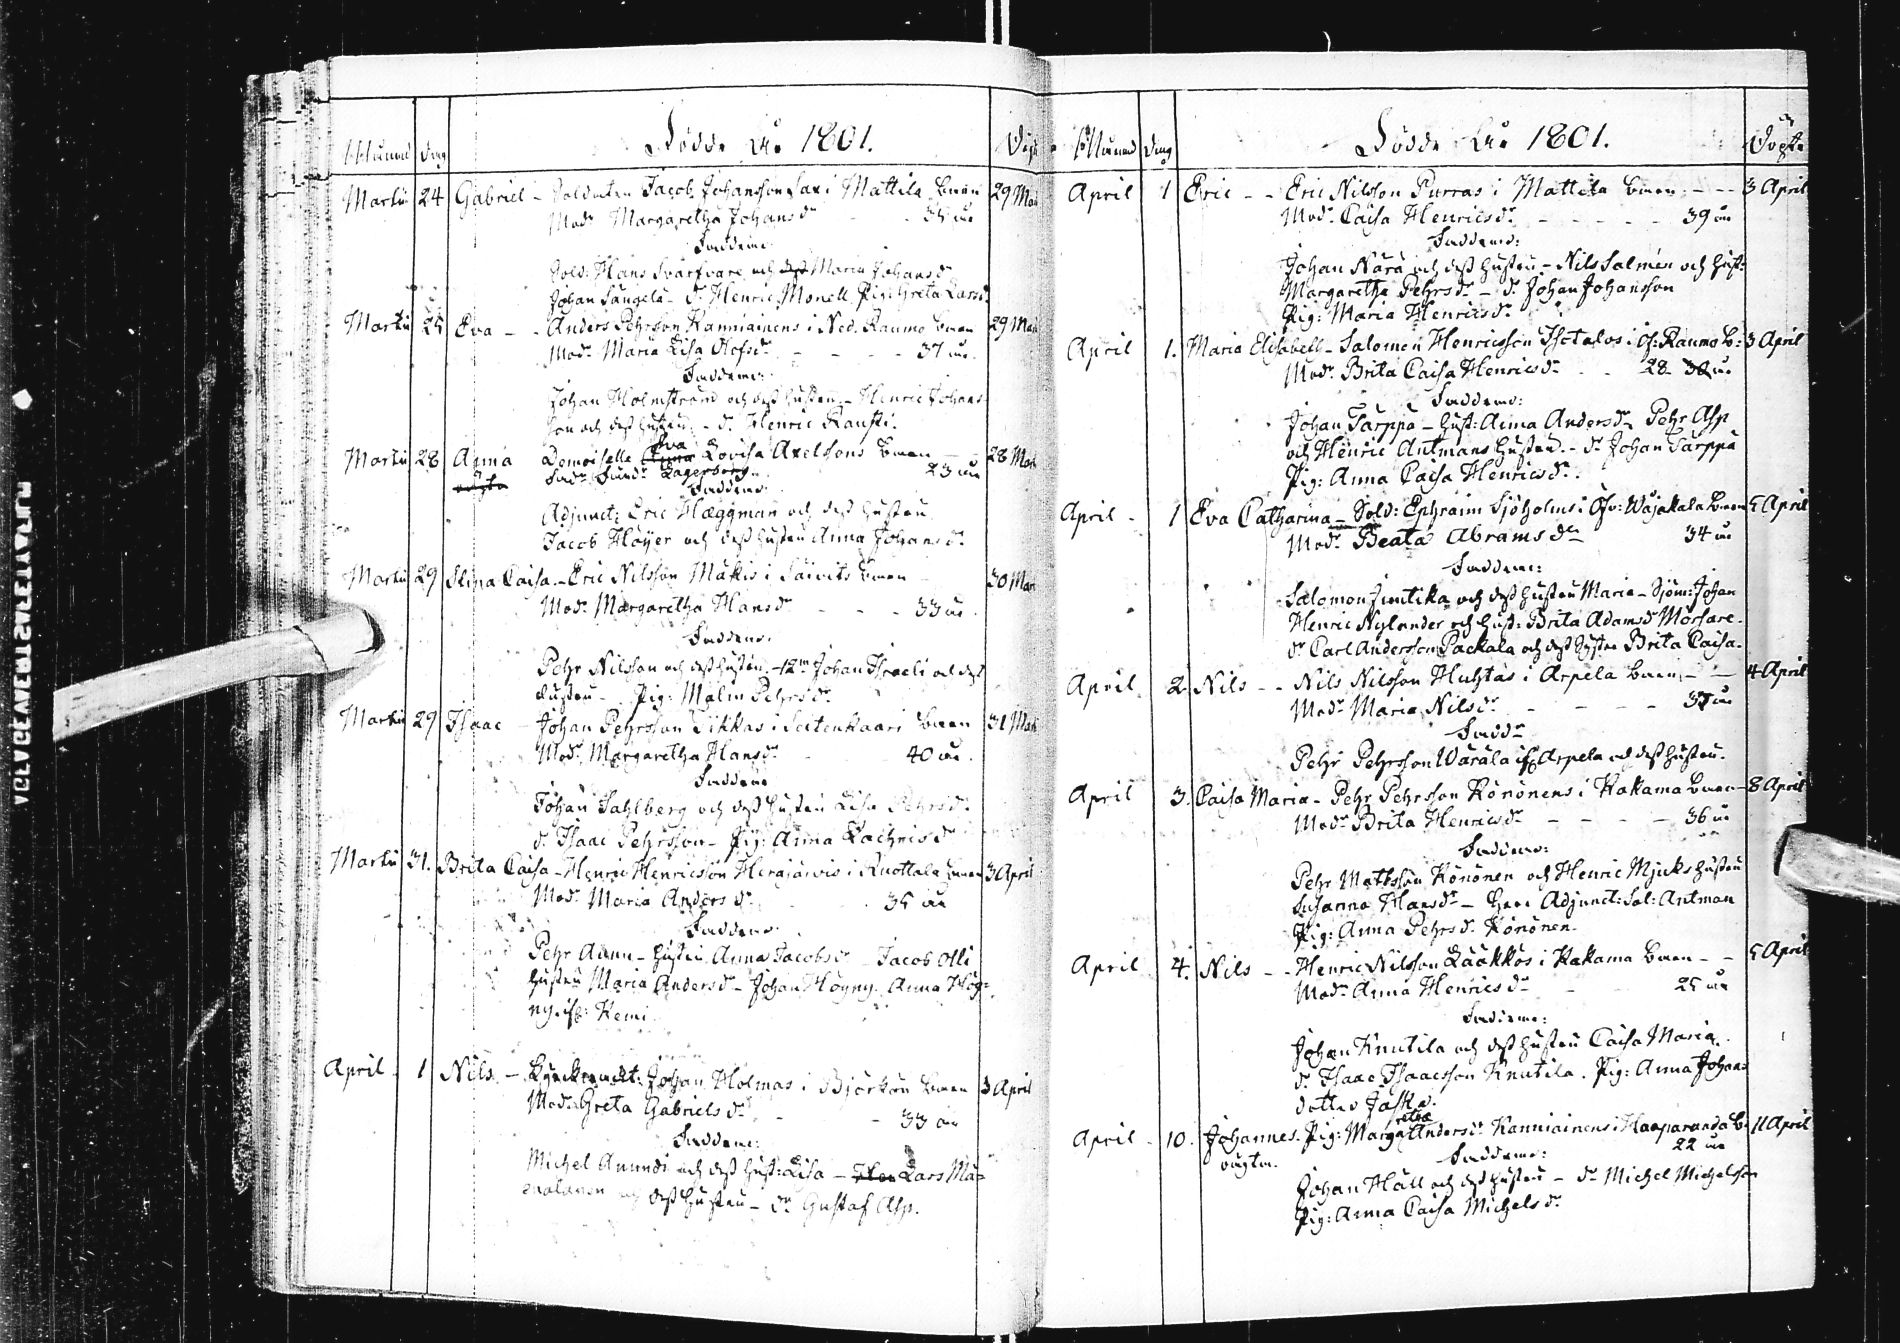 Månad Dag Födde År 1801. Döpt
Martii 24 Gabriel - Soldaten Jacob Johansson Lax i Mattila barn 29 Mar
Mod: Margaretha Johansdr 35 år
Faddrar:
Sold: Hans Svartvare och Maria Johansdr
Johan Längelä - Dr Henric Monell Pig: Greta Larsd
Martii 25 Eva - Anders Pehrsson Kanniainens i Ned. Raumo barn 29 Mar
Mod: Maria Lisa Olofsdr 37 år
Faddrar:
Johan Holmström och dess hustru - Henric Johans
son och dess hustru - Dr Henric Rauski.
Martii 28 Anna oägta Demoiselle Eva Lovisa Axelsons barn 28 Mar
Lagerborg 23 år
Faddrar:
Adjunct: Eric Hæggman och dess hustru
Jacob Höyer och dess hustru Anna Johansdr
Martii 29 Stina Caisa - Eric Nilsson Mäkis i Säivits barn 30 Mar
Mod: Margaretha Hansdr 33 år
Faddrar:
Pehr Nilsson och dess hustru - Johan Israeli och dess
hustru - Pig: Malin Pehrsdr
Martii 29 Isaac - Johan Pehrsson Sikkas i Leitenkaari barn 31 Mar
Mod: Margaretha Hansdr 40 år
Faddrar
Johan Sahlberg och dess hustru Lisa Pehrsd:
d. Isaac Pehrsson - Pig: Anna Zachrisdr
Martii 31. Brita Caisa - Henric Henricsson Herajärvis i Knottala barn 3 April
Mod: Maria Andersdr 35 år
Faddrar
Pehr - hustru Anna Jacobsdr - Jacob Olli
hustru Maria Andersdr - Johan Högny. Anna Hög=
ny if: Kemi
April 1 Nils - Johan Holmas i Björkön barn 3 April
Mod: Greta Gabrielsdr 33 år
Faddrar:
Michel Anundi och dess hust: Lisa - Lars Mä=
och dess hustru - Dr Gustaf Asp.
Månad Dag Födde År 1801. Döpte
April 1 Eric - - Eric Nilsson Purras i Mattila barn - - 3 April
Mod: Caisa Henricsdr 39 år
Faddrar:
Johan Nära och dess hustru - Nils Salmén och hust:
Margaretha Pehrsdr - d. Johan Johansson
Pig: Maria Henricsdr
April 1. Maria Elisabeth - Salomon Henricsson Isotalos i Öf: Raumo B: 3 April
Mod: Brita Caisa Henricsdr 28 30 år
Faddrar:
Johan Särppä - hust: Anna Andersdr Pehr Asp
och Henric Antmans hustru - dr Johan Särppä
Pig: Anna Caisa Henricsdr.
April 1 Eva Catharina - Sold: Ephraim Sjöholms i Öfv: Wojakala barn 5 April
Mod: Beata Abramsdr 34 år
Faddrar:
Salomon Juntika och dess hustru Maria - Sjöm: Johan
Henric Nylander och hust: Brita Adamsdr Morfare.
dr Carl Andersson Packala och dess syster Brita Caisa.
April 2 Nils - - Nils Nilsson Huhtas i Arpela barn - - 4 April
Mod: Maria Nilsdr 37 år
Faddr
Pehr Pehrsson Wärälä if: Arpela och dess hustru.
April 3. Caisa Maria - Pehr Pehrsson Könönens i Kakama barn 8 April
Mod: Brita Henricsdr 36 år
Faddrar:
Pehr Mattsson Könönen och Henric Mjuks hustru
Susanna Hansdr - Herr Adjunct: Sal: Antman
Pig: Anna Pehrsd. Könönen.
April 4. Nils - - Henric Nilsson Lääkkös i Kakama barn - - 5 April
Mod: Anna Henricsdr 25 år
Faddrar:
Johan Knutila och dess hustru Caisa Maria.
d. Isaac Isaacsson Knutila. Pig: Anna Johans
dotter Jaska.
April 10. Johannes oägta. Pig: Margaretha Andersdr Kanniainens i Haaparanda B. 11 April
22 år
Faddrar:
Johan Häll och dess hustru - dr Michel Michelsson
Pig: Anna Caisa Michelsdr